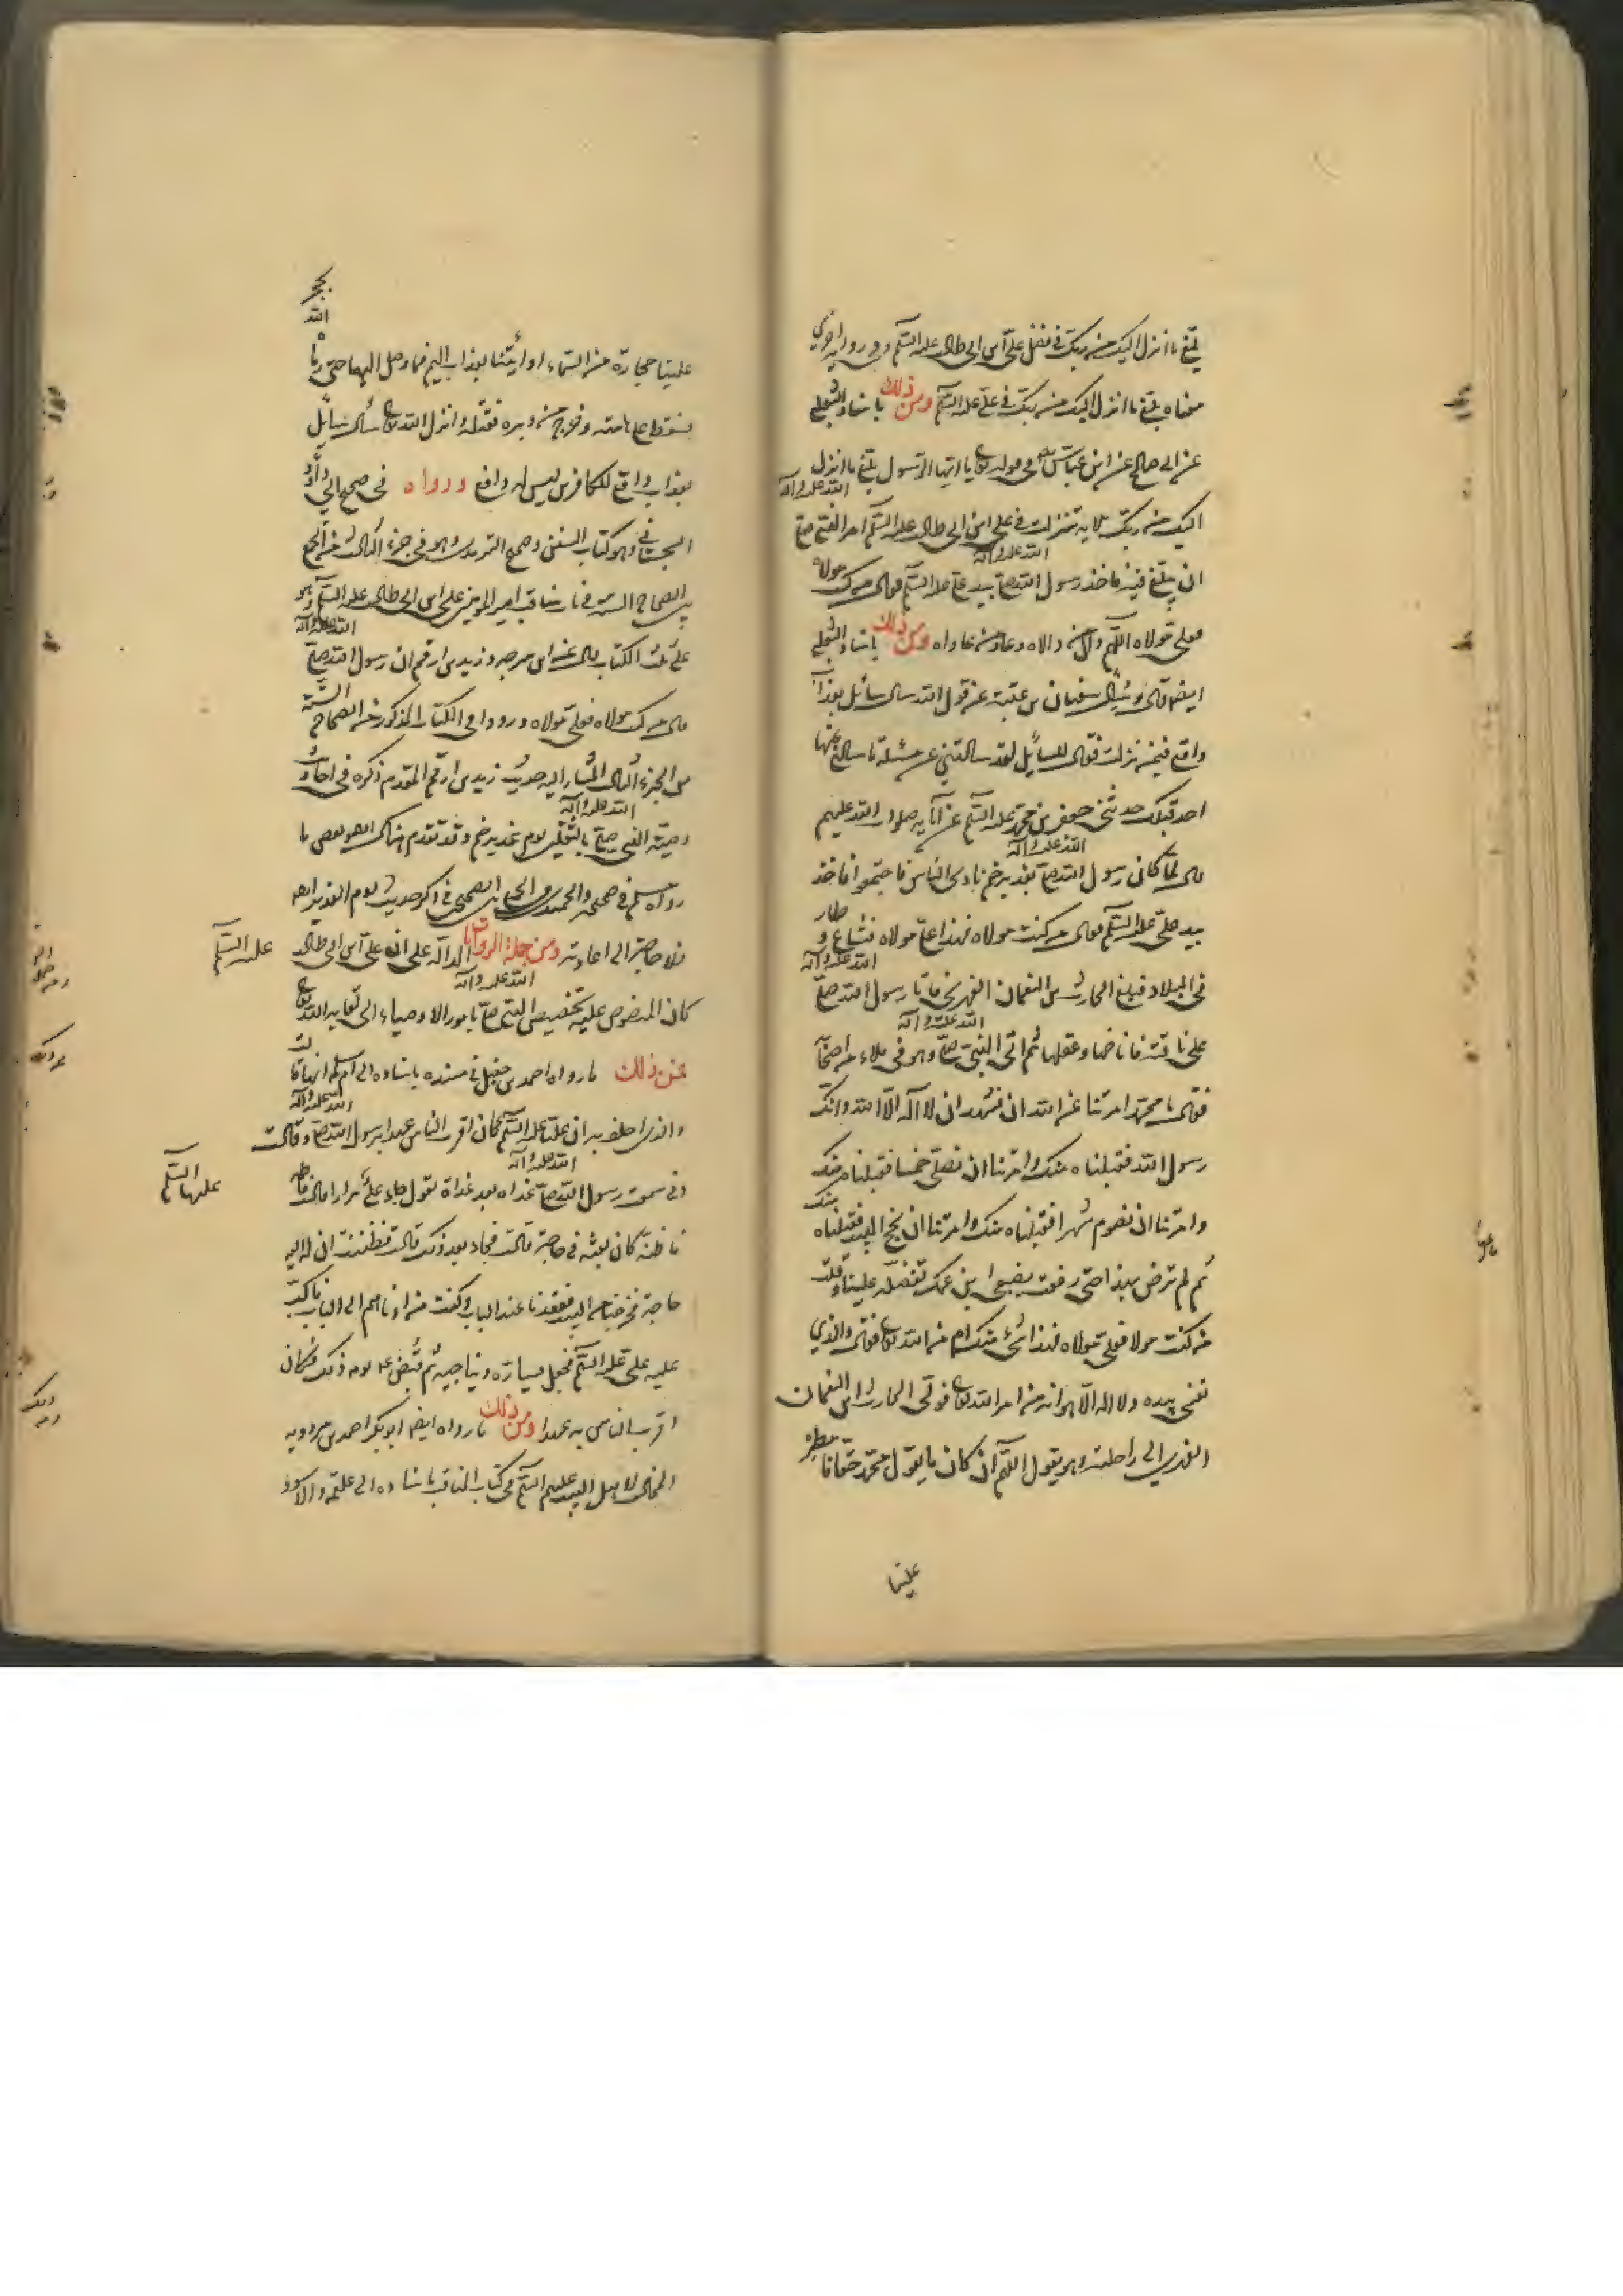 بلغ ما انزل اليك من ربك في فضل علي بن ابي طالب عليه السلم وفي رواية اخرى
معناه بلغ ما انزل اليك من ربك في علي عليه السلم ومن ذلك باسناد الثعلبي
عن ابي صالح عن ابن عباس في قوله تعا يا ايها الرسول بلغ ما انزل
اليك من ربك الاية نزلت في علي ابن ابي طالب عليه السلم امر النبي صلى الله عليه وآله
ان يبلغ فيه فاخذ رسول الله صلى الله عليه وآله بيد علي عليه السلم فقال من كنت مولاه
فعلي مولاه اللهم وال من والاه وعاد من عاداه ومن ذلك باسناد الثعلبي
ايضا قال وسئل سفيان بن عيينة عن قول الله سال سائل بعذاب
واقع فيمن نزلت فقال للسائل لقد سالتني عن مسئلة ما سالني عنها
احد قبلك حدثني جعفر بن محمد عليه السلم عن آبائه صلوات الله عليهم
قال لما كان رسول الله صلى الله عليه وآله بغدير خم نادى الناس فاجتمعوا فاخذ
بيد علي عليه السلم فقال من كنت مولاه فهذا علي مولاه فشاع وطار
في البلاد فبلغ الحارث بن النعمان الفهري فاتا رسول الله صلى الله عليه وآله
على ناقته فاناخها وعقلها ثم اتى النبي صلى الله عليه وآله وهو في ملاء من اصحابه
فقال يا محمد امرتنا عن الله ان نشهد ان لا اله الا الله وانك
رسول الله فقبلناه منك وامرتنا ان نصلي خمسا فقبلناه منك
وامرتنا ان نصوم شهرا فقبلناه منك وامرتنا ان نحج البيت فقبلناه منك
ثم لم ترض بهذا حتى رفعت بضبعي ابن عمك تفضله علينا وقلت
من كنت مولاه فعلي مولاه فهذا شيء منك ام من الله تعا فقال والذي
نفسي بيده ولا اله الا هو انه من امر الله تعا فولى الحارث ابن النعمان
الفهري الى راحلته وهو يقول اللهم ان كان ما يقول محمد حقا فامطر
علينا
علينا حجارة من السماء او ائتنا بعذاب اليم فما وصل اليها حتى رماه الله بحجر
فسقط على هامته وخرج من دبره فقتله وانزل الله تعا سال سائل
بعذاب واقع للكافرين ليس له دافع ورواه في صحيح ابي داود
السجستاني وهو كتاب السنن وصحيح الترمذي وهو في جزء الثالث من الجمع
بين الصحاح الستة في باب مناقب امير المؤمنين علي ابن ابي طالب عليه السلم وهو
على ثلث الكتاب قال عن ابي سرحه وزيد بن ارقم ان رسول الله صلى الله عليه وآله
قال من كنت مولاه فعلي مولاه ورووا في الكتاب المذكور من الصحاح الستة
من الجزء الثالث المشار اليه حديث زيد بن ارقم المقدم ذكره في احاديث
وصية النبي صلى الله عليه وآله بالثقلين يوم غدير خم وقد تقدم هناك ايضا بعض ما
رواه مسلم في صحيحه والحميدي في الجمع بين الصحيحين في ذكر حديث يوم الغدير ايضا
فلا حاجة الى اعادته ومن جملة الروايات الدالة على ان علي بن ابي طالب عليه السلم
كان المنصوص عليه تخصيص النبي صلى الله عليه وآله بامور الاوصياء الى لقاء الله تعا
فمن ذلك ما رواه احمد بن حنبل في مسنده باسناده الى ام سلمة انها قالت
والذي احلف به ان عليا عليه السلم كان اقرب الناس عهدا برسول الله صلى الله عليه وآله وقالت
اني سمعت رسول الله صلى الله عليه وآله غداة بعد غداة يقول جاء علي مرارا قالت فاطمة عليها السلم
فاظنه كان بعثه في حاجة قالت فجاء بعد ذلك قالت فظننت ان له اليه
حاجة فخرجنا من البيت فقعدنا عند الباب وكنت من ادناهم الى الباب فاكب
عليه علي عليه السلم فجعل يساره ويناجيه ثم قبض من يومه ذلك فكان
اقرب الناس به عهدا ومن ذلك ما رواه ايضا ابو بكر احمد بن مردويه
المخالف لاهل البيت عليهم السلم في كتاب المناقب باسناده الى علقمة والاسود